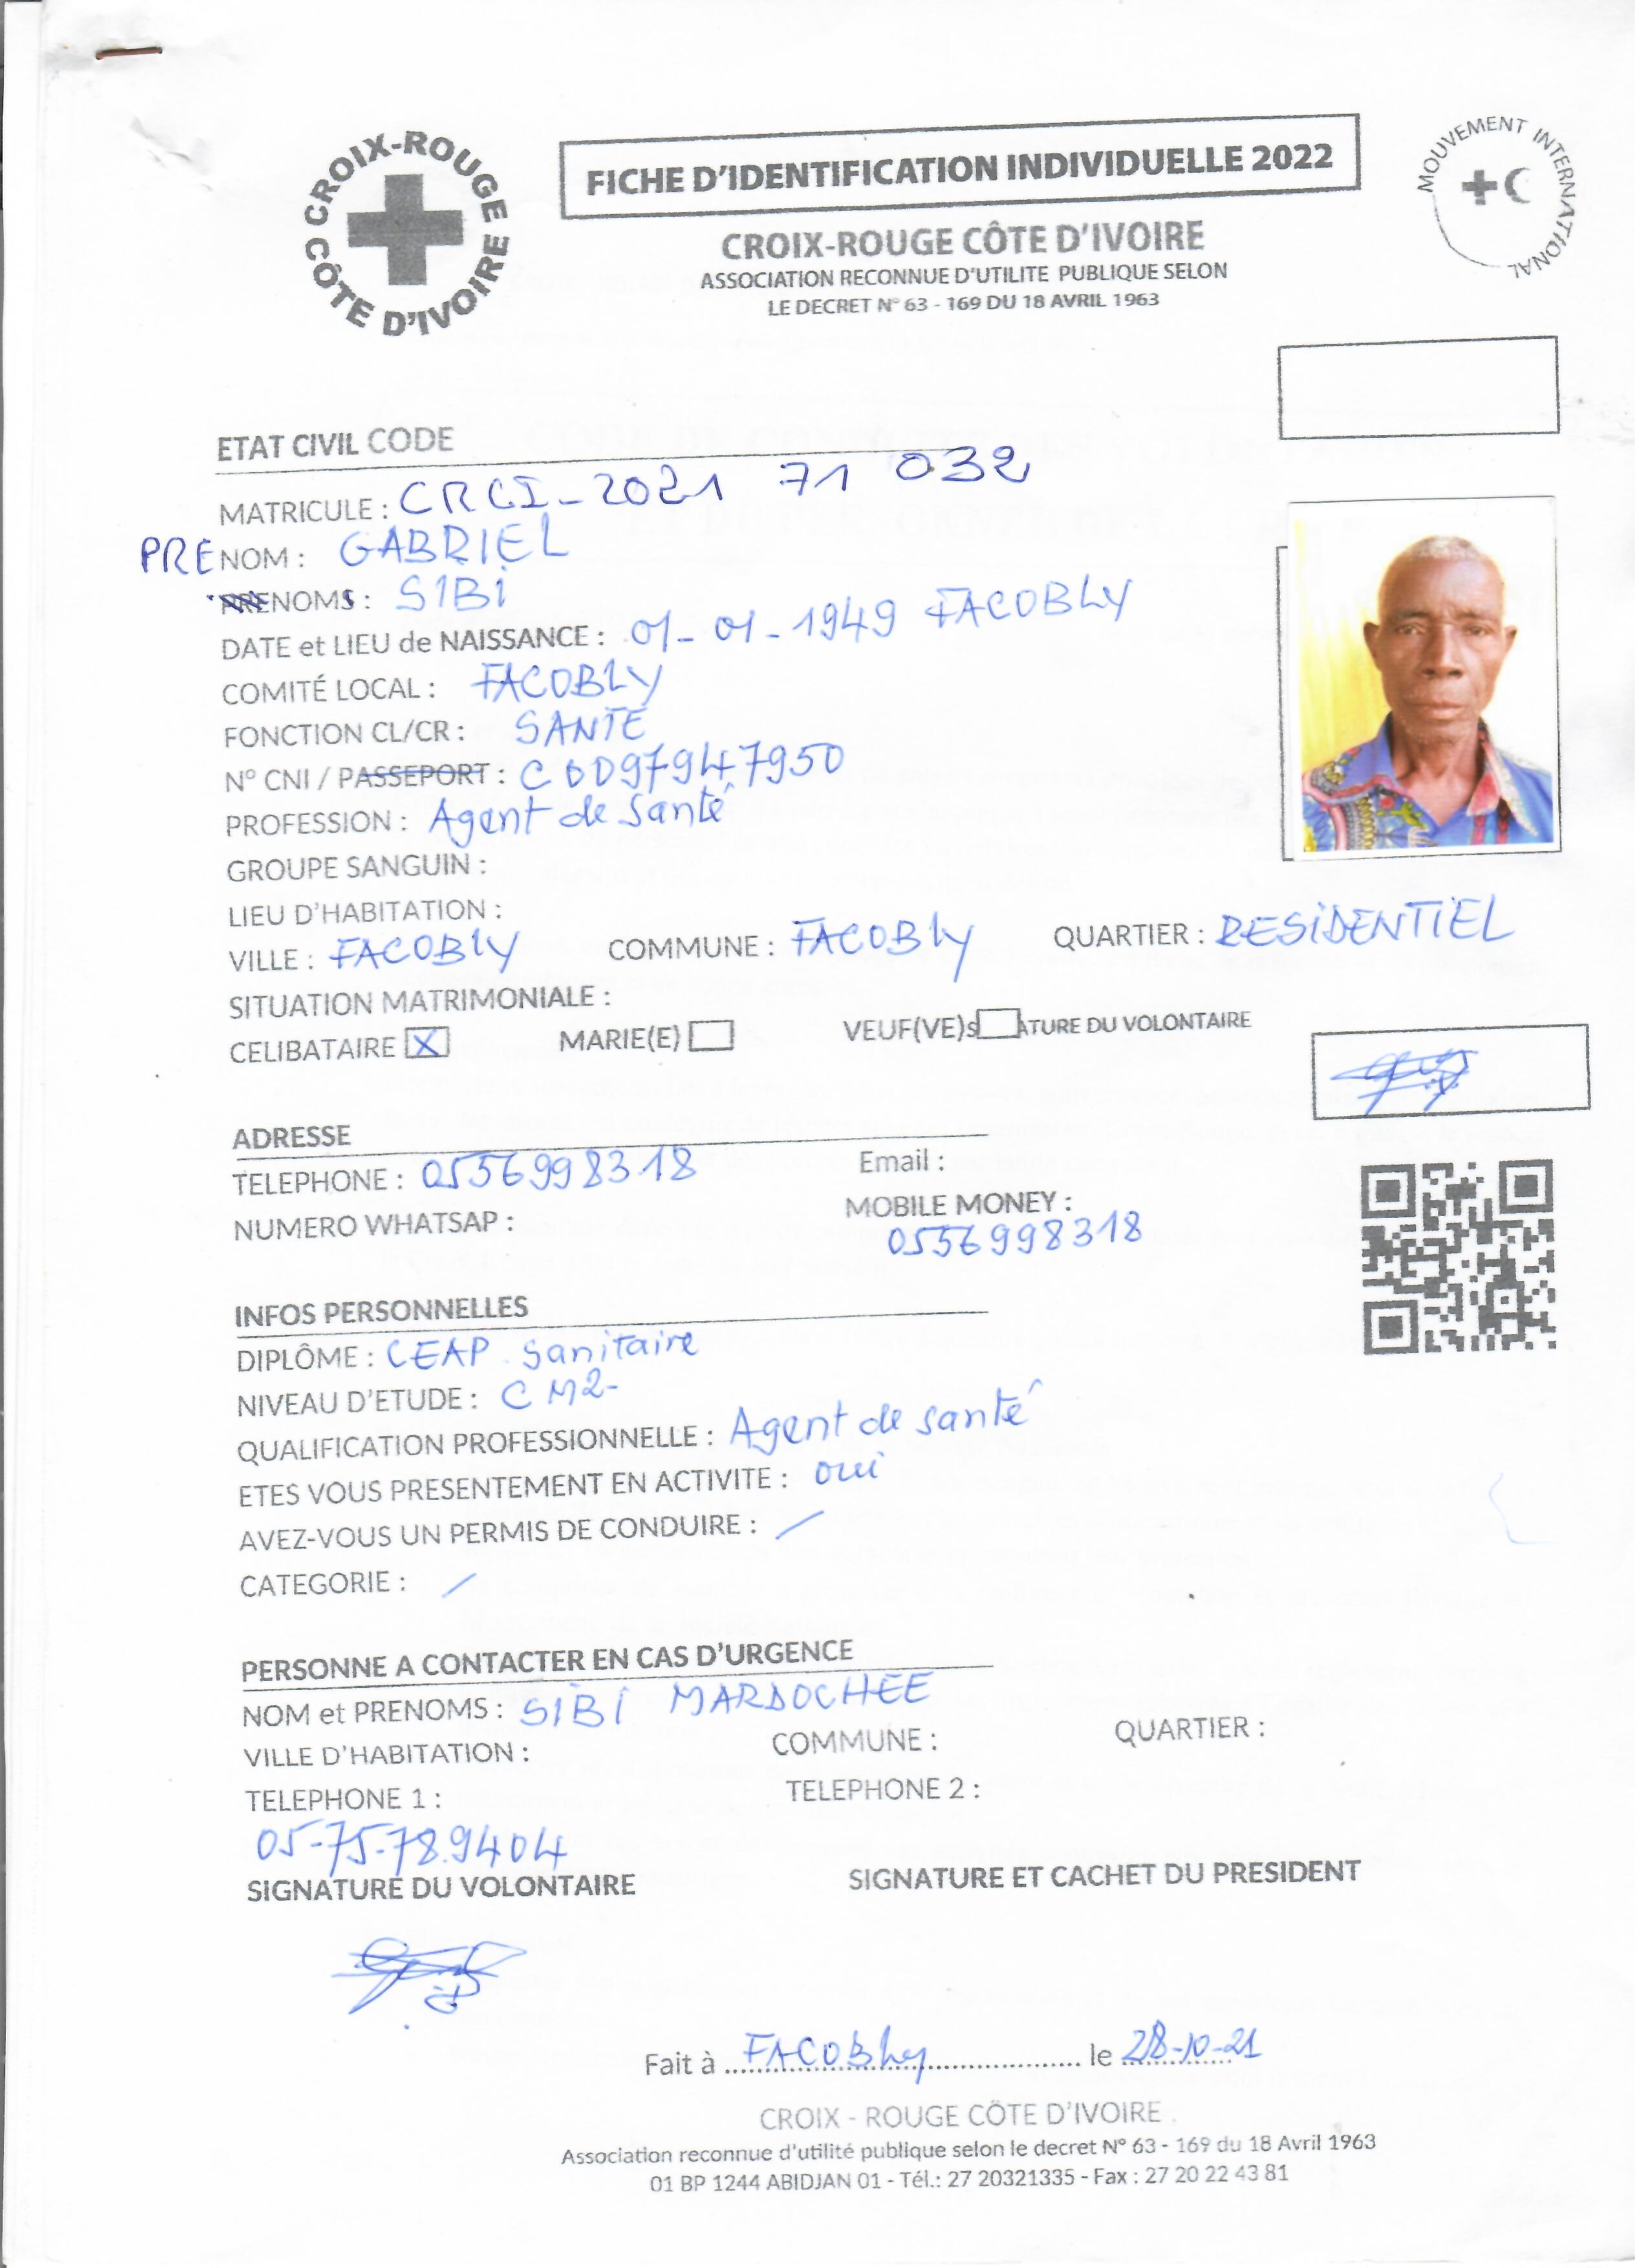 CROIX-ROUGE CÔTE D'IVOIRE
FICHE D'IDENTIFICATION INDIVIDUELLE 2022
MOUVEMENT INTERNATIONAL
CROIX-ROUGE CÔTE D'IVOIRE
ASSOCIATION RECONNUE D'UTILITE PUBLIQUE SELON
LE DECRET N° 63 - 169 DU 18 AVRIL 1963
ETAT CIVIL CODE
MATRICULE : CRCI-2021 71 032
PRENOM : GABRIEL
NOMS : SIBI
DATE et LIEU de NAISSANCE : 01-01-1949 FACOBLY
COMITÉ LOCAL : FACOBLY
FONCTION CL/CR : SANTE
N° CNI / PASSEPORT : C 0097947950
PROFESSION : Agent de Santé
GROUPE SANGUIN :
LIEU D'HABITATION :
VILLE : FACOBLY COMMUNE : FACOBLY QUARTIER : RESIDENTIEL
SITUATION MATRIMONIALE :
CELIBATAIRE X MARIE(E) VEUF(VE) ATURE DU VOLONTAIRE
ADRESSE
TELEPHONE : 0556998318 Email :
NUMERO WHATSAP : MOBILE MONEY :
0556998318
INFOS PERSONNELLES
DIPLÔME : CEAP Sanitaire
NIVEAU D'ETUDE : CM2-
QUALIFICATION PROFESSIONNELLE : Agent de santé
ETES VOUS PRESENTEMENT EN ACTIVITE : oui
AVEZ-VOUS UN PERMIS DE CONDUIRE : /
CATEGORIE : /
PERSONNE A CONTACTER EN CAS D'URGENCE
NOM et PRENOMS : SIBI MARDOCHEE
VILLE D'HABITATION : COMMUNE : QUARTIER :
TELEPHONE 1 : TELEPHONE 2 :
05-75-78.9404
SIGNATURE DU VOLONTAIRE SIGNATURE ET CACHET DU PRESIDENT
Fait à FACOBLY le 28-10-21
CROIX - ROUGE CÔTE D'IVOIRE
Association reconnue d'utilité publique selon le decret N° 63 - 169 du 18 Avril 1963
01 BP 1244 ABIDJAN 01 - Tél.: 27 20321335 - Fax : 27 20 22 43 81